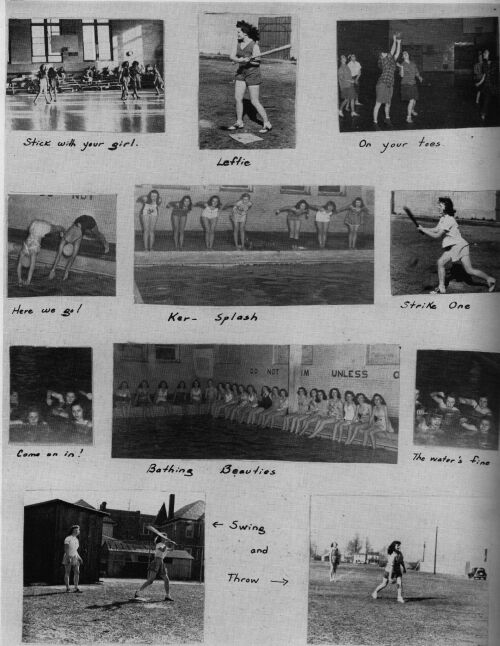 Stick with your girl.
Leftie
On your toes.
DO NOT
Here we go!
Ker- Splash
Strike One
DO NOT IM UNLESS
Come on in!
Bathing Beauties
The water's fine
← Swing
and
Throw →